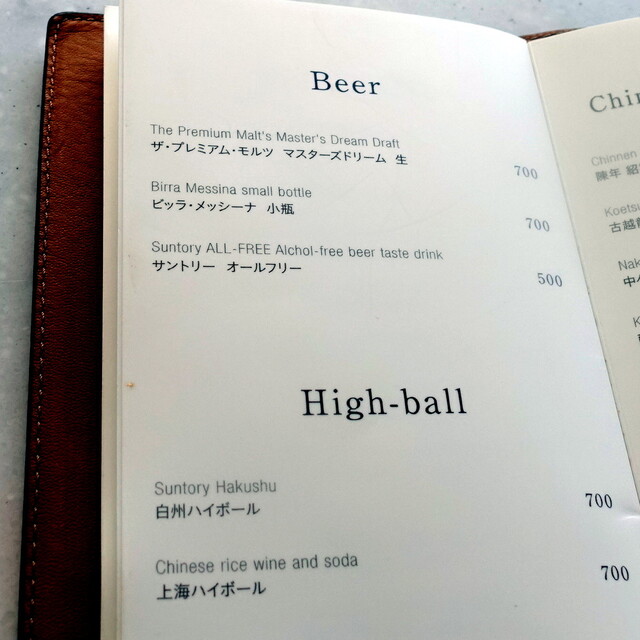 Beer
The Premium Malt's Master's Dream Draft
ザ・プレミアム・モルツ マスターズドリーム 生
700
Birra Messina small bottle
ビッラ・メッシーナ 小瓶
700
Suntory ALL-FREE Alchol-free beer taste drink
サントリー オールフリー
500
High-ball
Suntory Hakushu
白州ハイボール
700
Chinese rice wine and soda
上海ハイボール
700
Chin
Chinnen
陳年 紹
Koetsu
古越
Nak